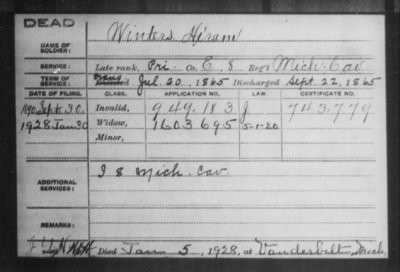 DEAD
NAME OF SOLDIER: Winters, Hiram
SERVICE: Late rank, Pri. Co. E, 8 Reg't Mich. Cav.
TERM OF SERVICE: Enlisted Jul. 20, 1865 Discharged Sept. 22, 1865
DATE OF FILING. CLASS. APPLICATION NO. LAW. CERTIFICATE NO.
1890 Sept. 30. Invalid, 949.183 J 743.779
1928 Jan 30 Widow, 1603 695 5-1-20
Minor,
ADDITIONAL SERVICES: I 8 Mich. Cav.
REMARKS:
Died Jan 5, 1928, at Vanderbilt, Mich